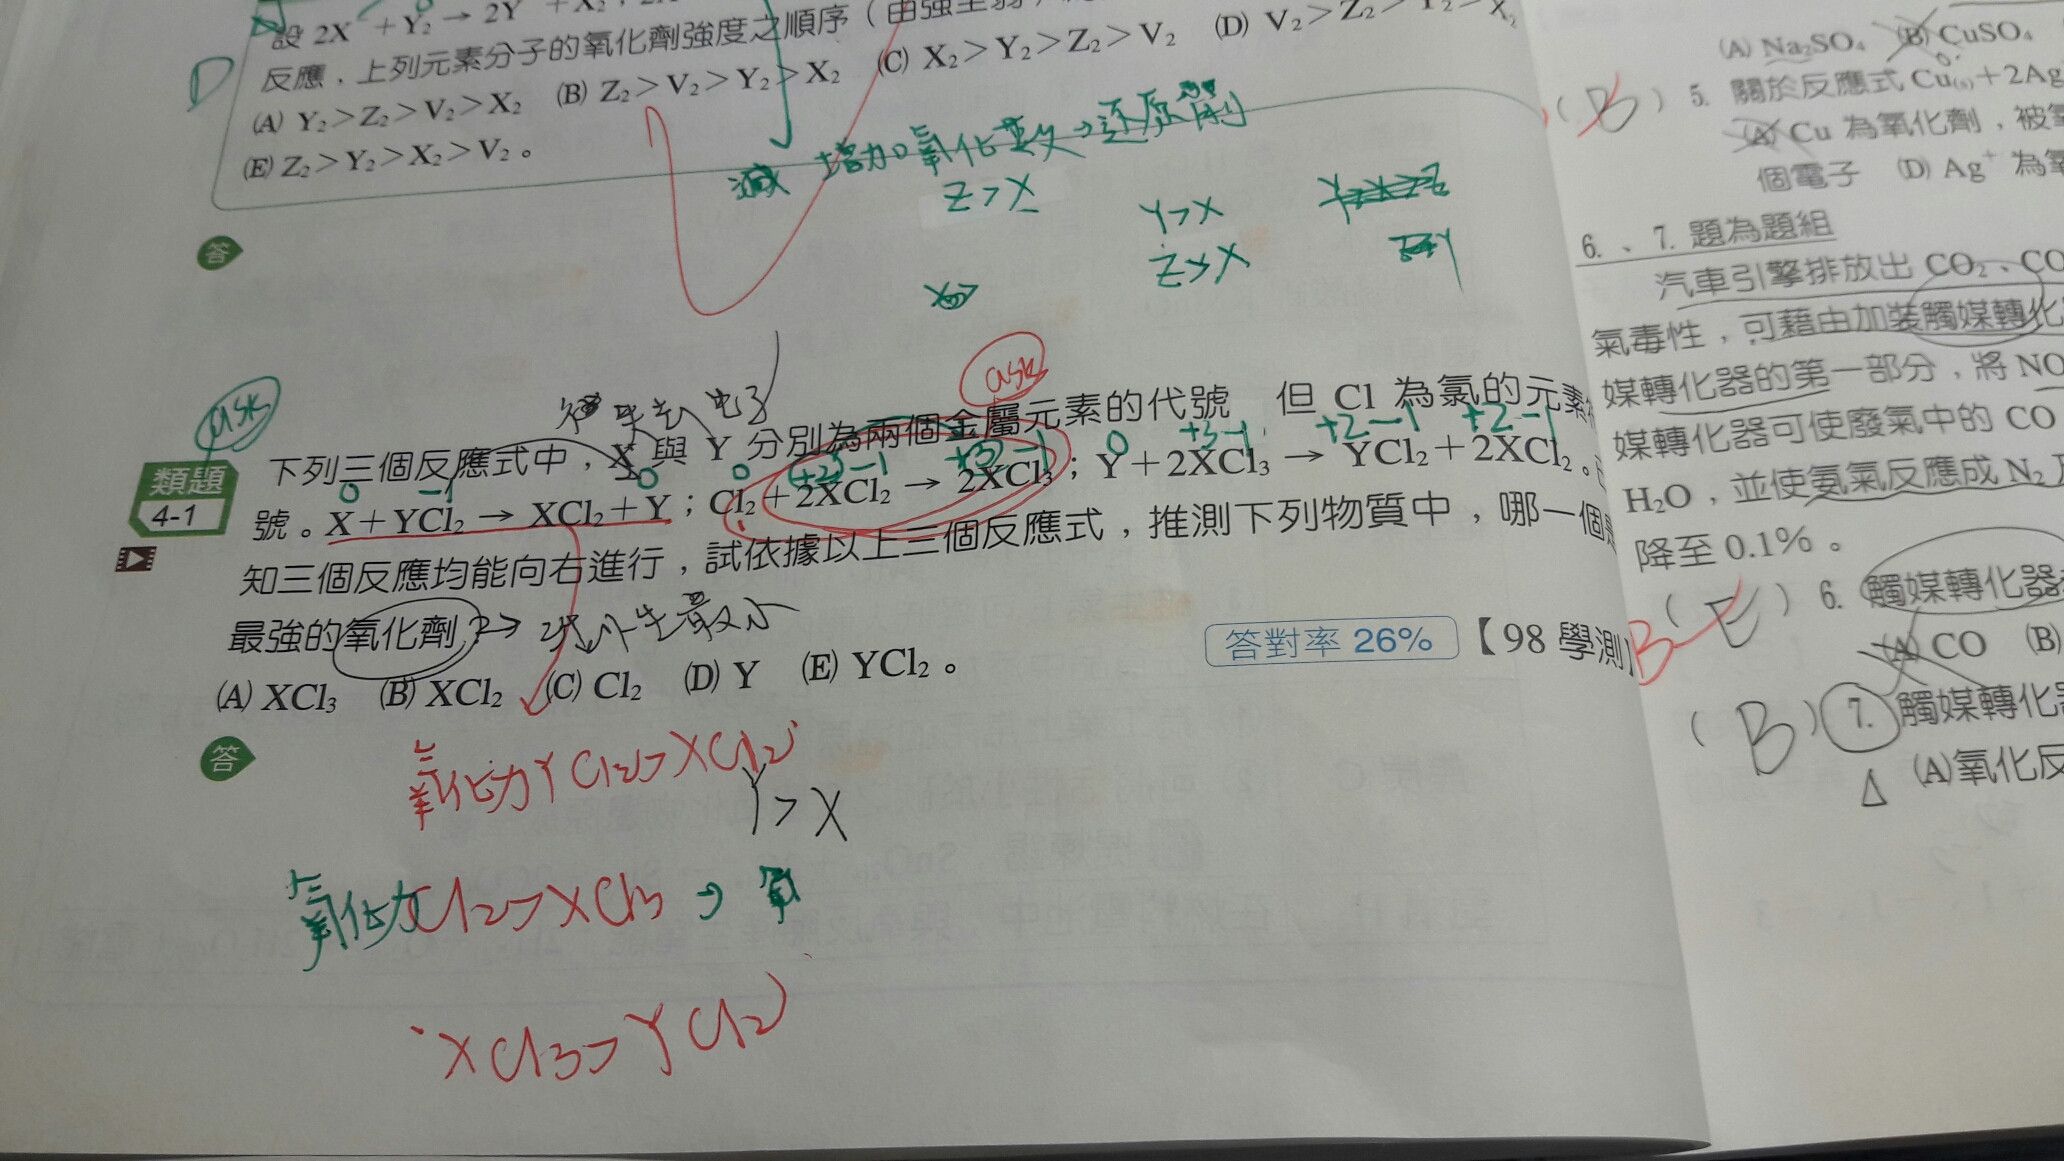 設 2X⁻ + Y₂ → 2Y⁻ + X₂
反應，上列元素分子的氧化劑強度之順序（由強至弱
D
(A) Y₂＞Z₂＞V₂＞X₂ (B) Z₂＞V₂＞Y₂＞X₂ (C) X₂＞Y₂＞Z₂＞V₂ (D) V₂＞Z₂＞Y₂＞X₂
(E) Z₂＞Y₂＞X₂＞V₂。
減 增加氧化數→還原劑
Z＞X
Y＞X
Z＞X
答
ask
ask
下列三個反應式中，X 與 Y 分別為兩個金屬元素的代號 但 Cl 為氯的元素符
0 -1 0 0 +2 -1 +3 -1 0 +3 -1 +2 -1 +2 -1
類題
4-1
號。X＋YCl₂ → XCl₂＋Y；Cl₂＋2XCl₂ → 2XCl₃；Y＋2XCl₃ → YCl₂＋2XCl₂。已
知三個反應均能向右進行，試依據以上三個反應式，推測下列物質中，哪一個是
最強的氧化劑？→ 活性最小
答對率 26% 【98 學測】
(A) XCl₃ (B) XCl₂ (C) Cl₂ (D) Y (E) YCl₂。
答
氧化力 YCl₂＞XCl₂
Y＞X
氧化力 Cl₂＞XCl₃ → 氧
XCl₃＞YCl₂
(A) Na₂SO₄ (B) CuSO₄
(B) 5. 關於反應式 Cu(s)＋2Ag
(A) Cu 為氧化劑，被氧
個電子 (D) Ag⁺ 為氧
6.、7. 題為題組
汽車引擎排放出 CO₂、CO
氣毒性，可藉由加裝觸媒轉化
媒轉化器的第一部分，將 NO
媒轉化器可使廢氣中的 CO
H₂O，並使氨氣反應成 N₂
降至 0.1%。
B (E) 6. 觸媒轉化器
(A) CO (B)
(B) 7. 觸媒轉化器
△ (A)氧化反